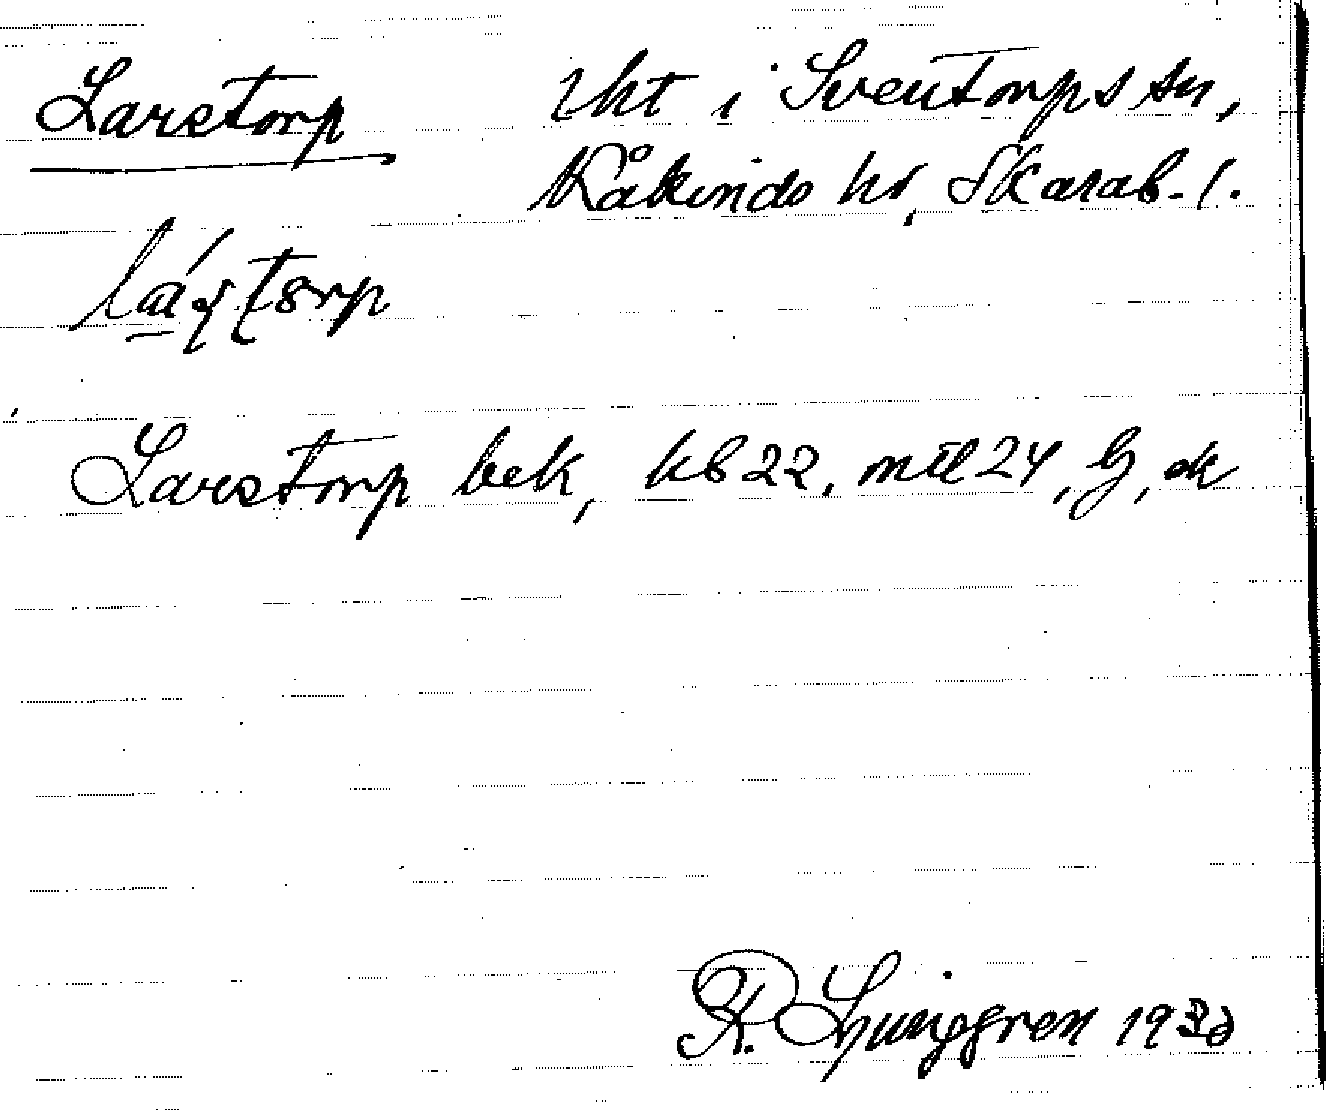 Larstorp lht i Sventorps sn,
Kåkinds hd, Skarab. l.
Larstorp bek, kb 22, mtl 24, G, ek
R. Ljunggren 1930